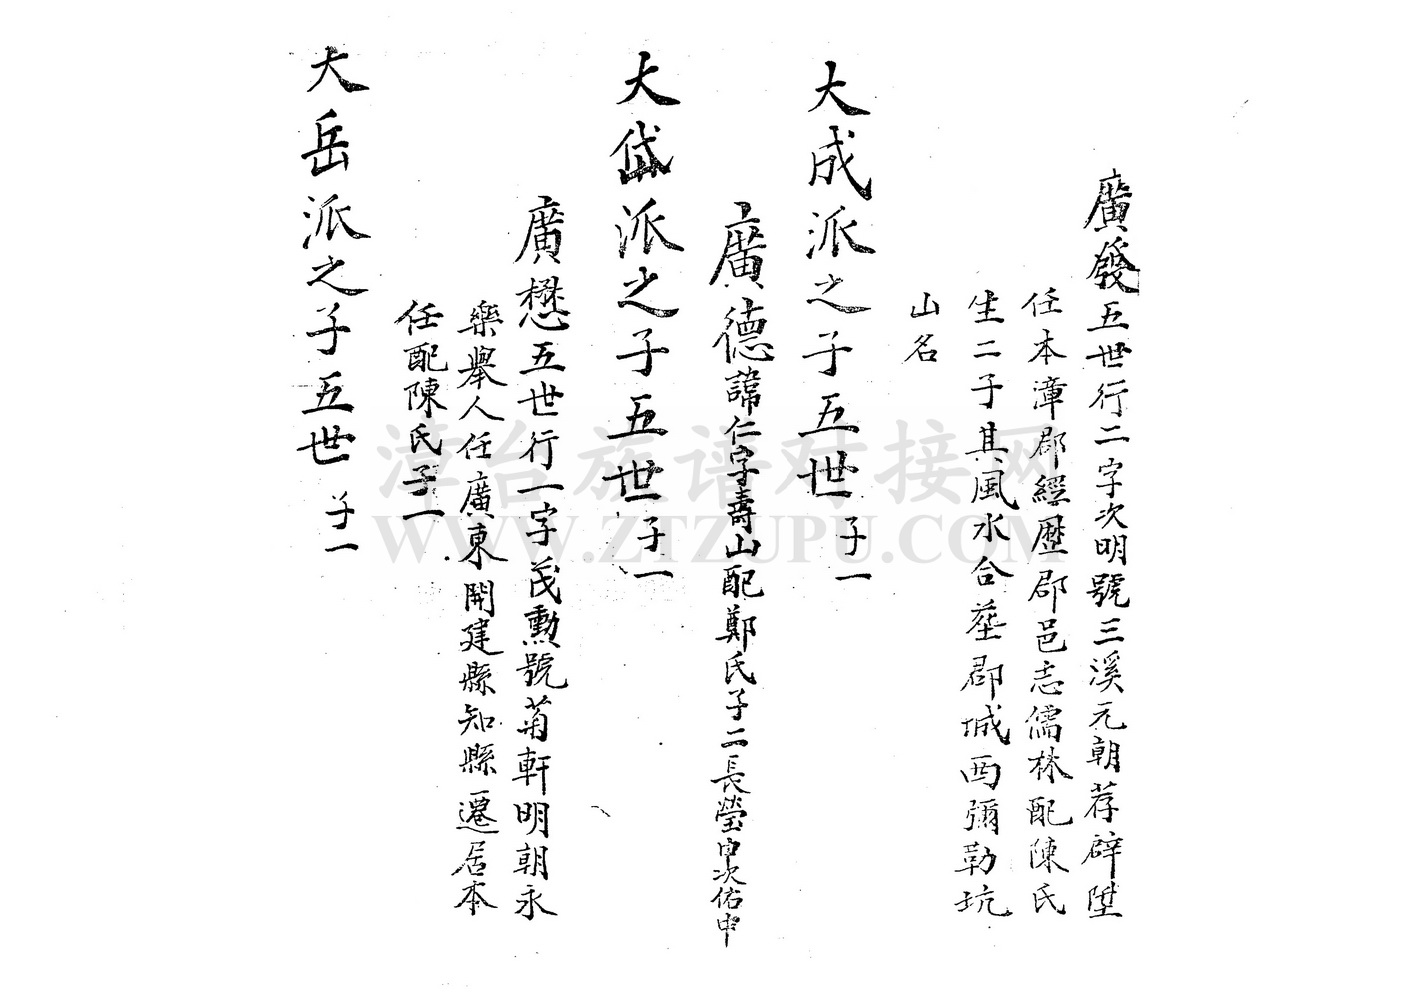 廣發五世行二字次明號三溪元朝荐辟陞
任本漳郡經歷郡邑志儒林配陳氏
生二子其風水合塟郡城西彌勒坑
山名
大成派之子五世子一
廣德諱仁字壽山配鄭氏子二長瑩申次佑申
大岱派之子五世子一
廣懋五世行一字茂勳號菊軒明朝永
樂舉人任廣東開建縣知縣遷居本
任配陳氏子一
大岳派之子五世子一
漳台族谱对接网
WWW.ZTZUPU.COM